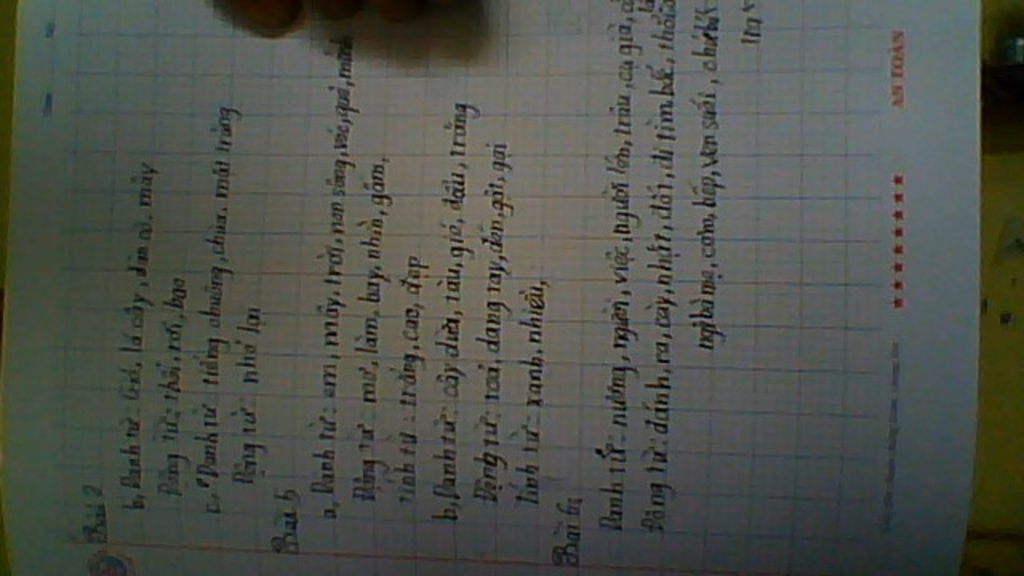 Bài 2
b, Danh từ: Gió, lá cây, đàn cò, mây
Động từ: thổi, rơi, bay
c, Danh từ: tiếng chuông, chùa, mặt trăng
Động từ: nhỏ lại
Bài 5
a, Danh từ: em, mây, trời, non sông, vóc, quê, mình
Động từ: mơ, làm, bay, nhìn, gấm,
Tính từ: trắng, cao, đẹp
b, Danh từ: cây dừa, tàu, gió, đầu, trăng
Động từ: toả, dang tay, đón, gật, gọi
Tính từ: xanh, nhiều,
Bài 6a
Danh từ: nương, người, việc, người lớn, trâu, cụ già,
Động từ: đánh, ra, cày, nhặt, đốt, đi tìm, bắc, thổi
ngô bà mẹ, cơm, bếp, ven suối, chú bé
AN TOÀN